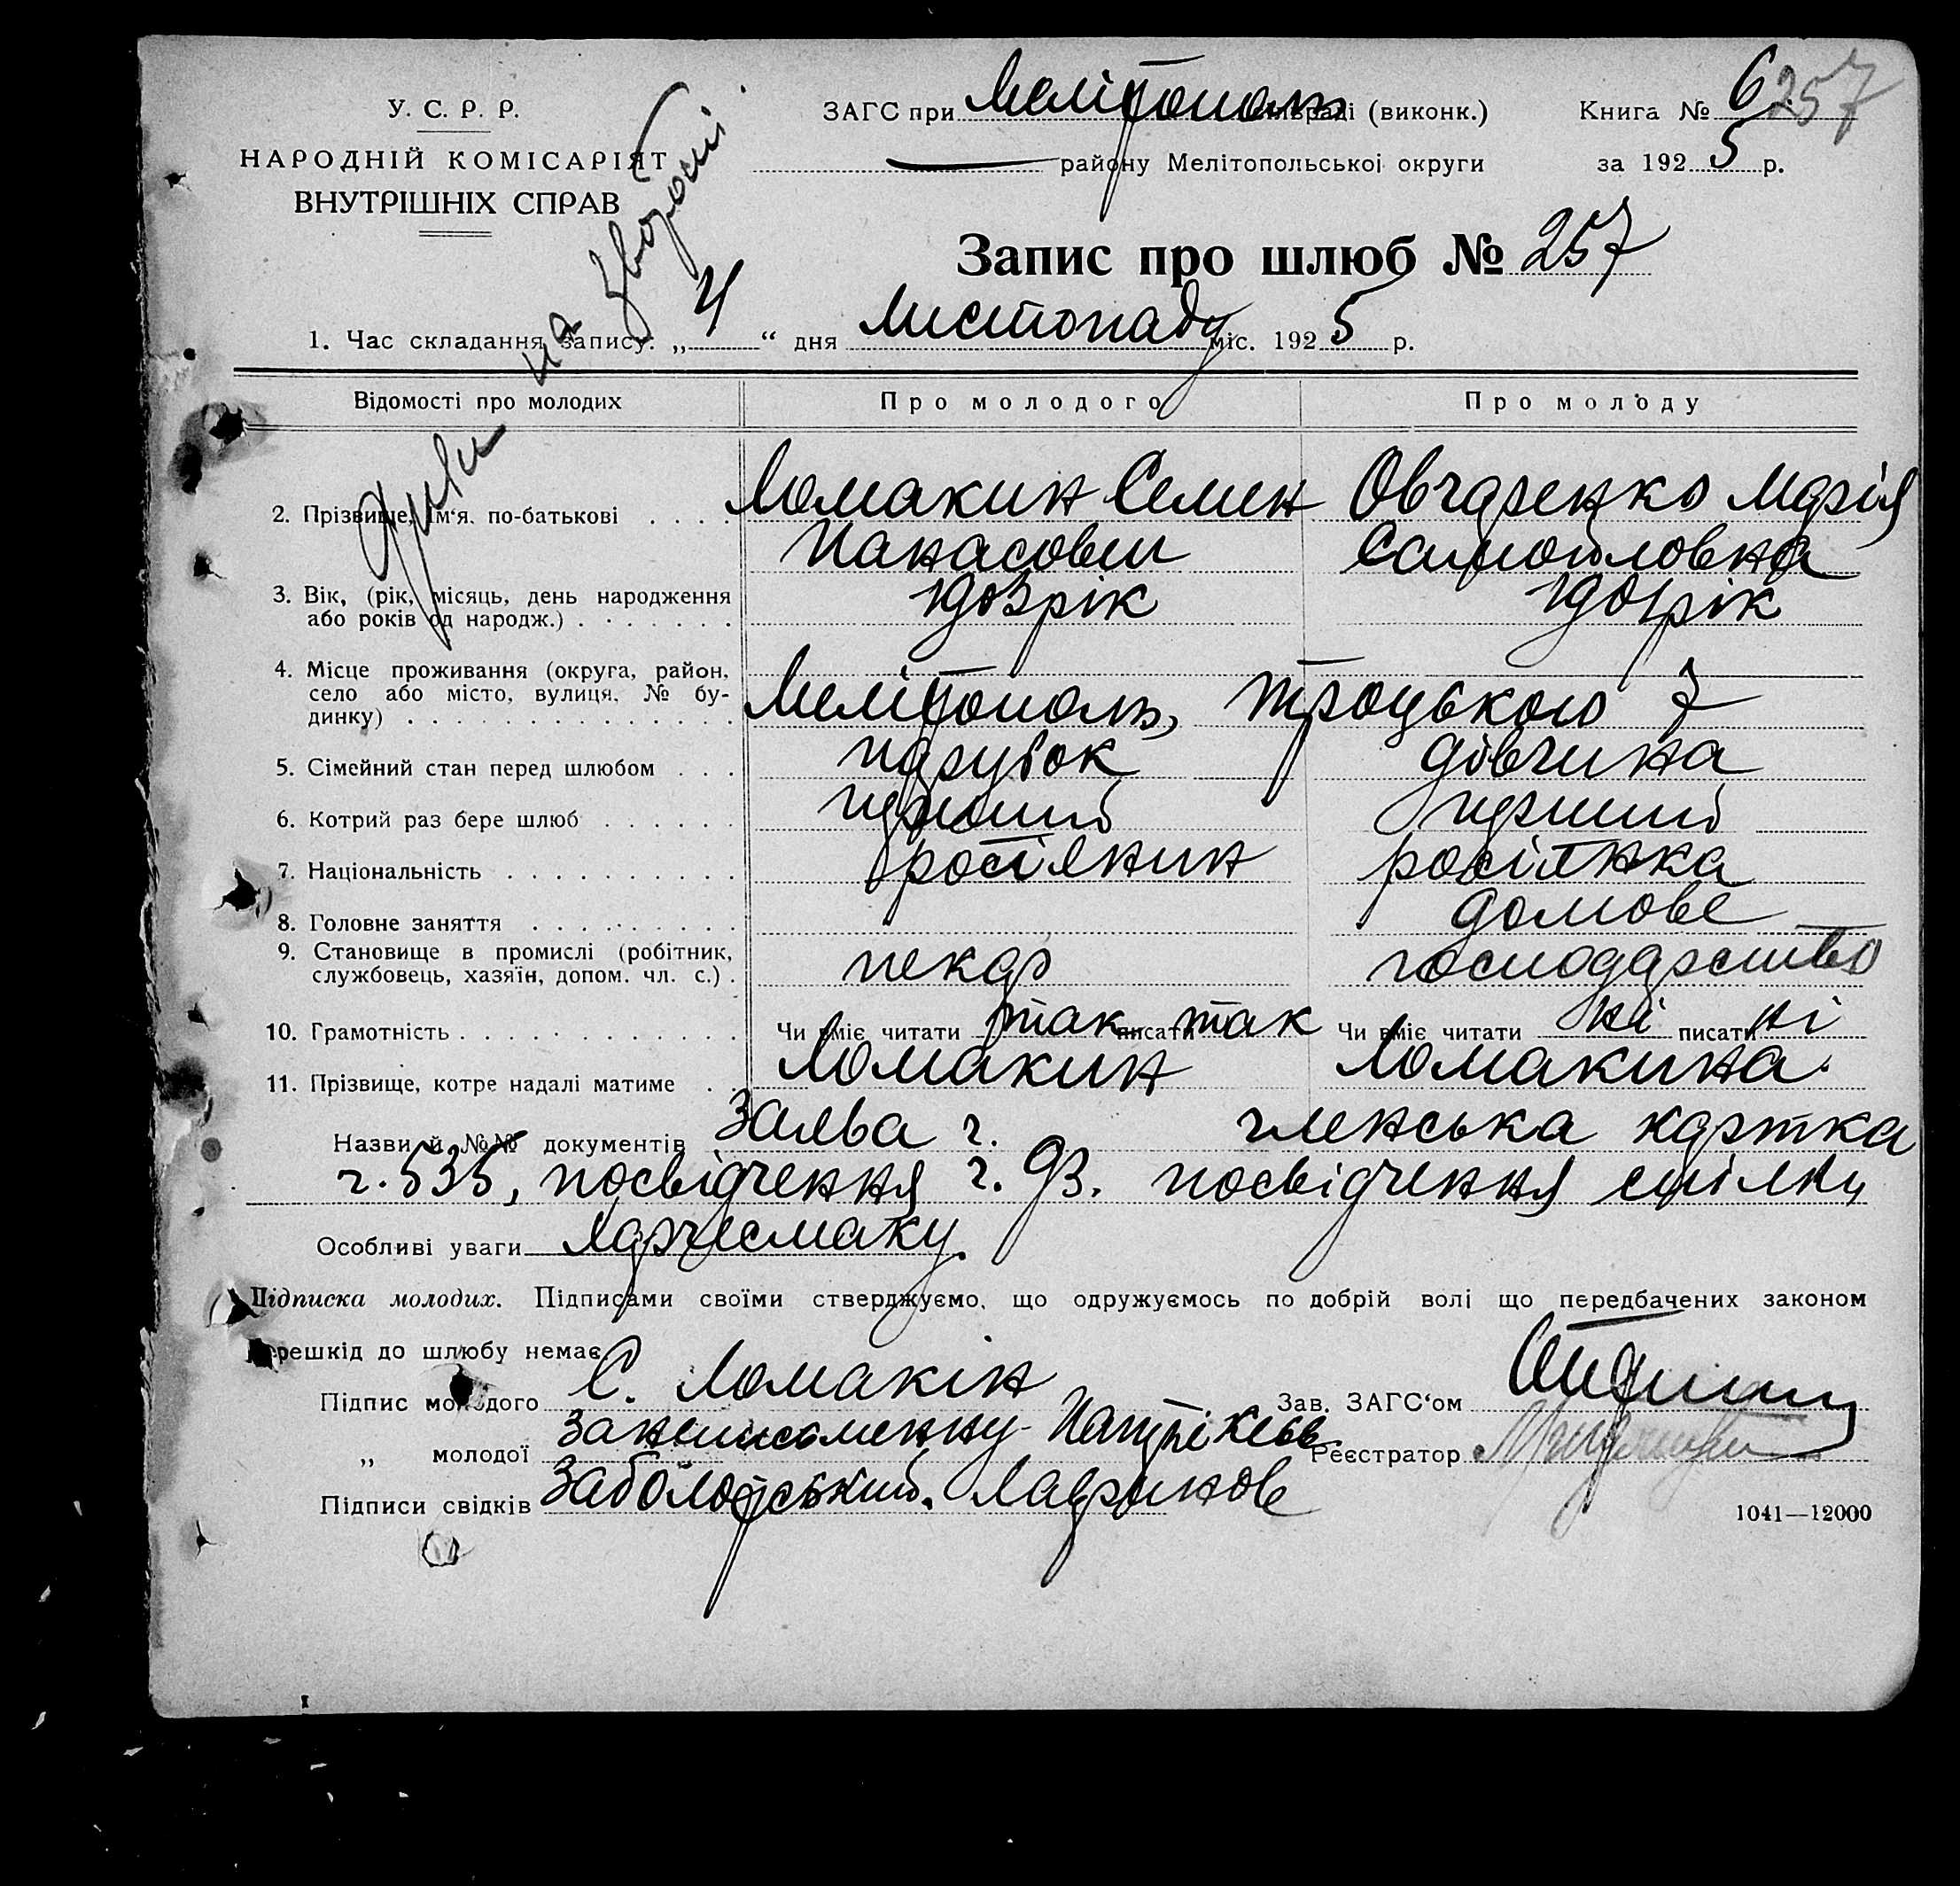 У. С. Р. Р.
НАРОДНІЙ КОМІСАРІЯТ
ВНУТРІШНІХ СПРАВ
на звороті
ЗАГС при Мелітополь раді (виконк.)
району Мелітопольської округи
Книга № 6 257
за 1925 р.
Запис про шлюб № 257
1. Час складання запису: „4“ дня листопаду міс. 1925 р.
Відомості про молодих Про молодого Про молоду
2. Прізвище, ім'я, по-батькові . . . . Ломакин Семен Овчаренко Марія
Панасович Самойловна
3. Вік, (рік, місяць, день народження 1903 рік 1904 рік
або років од народж.) . . . . . . .
4. Місце проживання (округа, район,
село або місто, вулиця, № бу- Мелітополь, Троцького 7
динку) . . . . . . . . . . . . . .
5. Сімейний стан перед шлюбом . . . парубок дівчина
6. Котрий раз бере шлюб . . . . . . перший перший
7. Національність . . . . . . . . . . росіянин росіянка
8. Головне заняття . . . . . . . . . домове
9. Становище в промислі (робітник,
службовець, хазяїн, допом. чл. с.) . пекар господарство
10. Грамотність . . . . . . . . . . . . Чи вміє читати так писати так Чи вміє читати ні писати ні
11. Прізвище, котре надалі матиме . . Ломакин Ломакина.
Назви й №№ документів Заява ч. членська картка
ч. 535, посвідчення ч. 93. посвідчення спілки
Особливі уваги харчесмаку.
Підписка молодих. Підписами своїми стверджуємо, що одружуємось по добрій волі що передбачених законом
перешкід до шлюбу немає.
Підпис молодого С. Ломакін Зав. ЗАГС'ом
„ молодої За неписьменну Реєстратор
Підписи свідків Заболотський. Лавринов
1041—12000